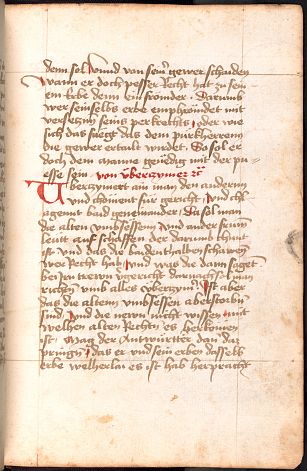 dem sol Vnnd von seiner gewer schaiden
Wann er doch pesser Recht hat zu sein-
em Erbe denn ein frömder Darumb
wer seinselbs erbe empfrömdet mit
versetzen seins pern oder wie
sich das fuegt Als dem purkherrenn
die gewer ertailt wirdet So sol er
doch dem manne genedig mit der pu-
esse sein von vberzymer
Vberzymert ain man den anderm
vnd choment für gericht Vnd chl-
agennt baid geneinander Da sol man
die alten vmbsessenn Vnd ander frum
leutt auf schaffen der darumb chunt
ist vnd das die baidenthalben schawen
wer Recht hab Vnd was die dann sagent
bei Irn trewn vor gericht darnach sol man
richten vmb alles vberzymer Ist aber
das die altenn vmbsessen abgestorben
sind Vnd die newn nicht wissen mit
welhen alter Rechten es herkomen
ist Mag der Antwurtter dan daz
pringen das er vnd sein erben dasselb
erbe welherlai es ist hab herpracht